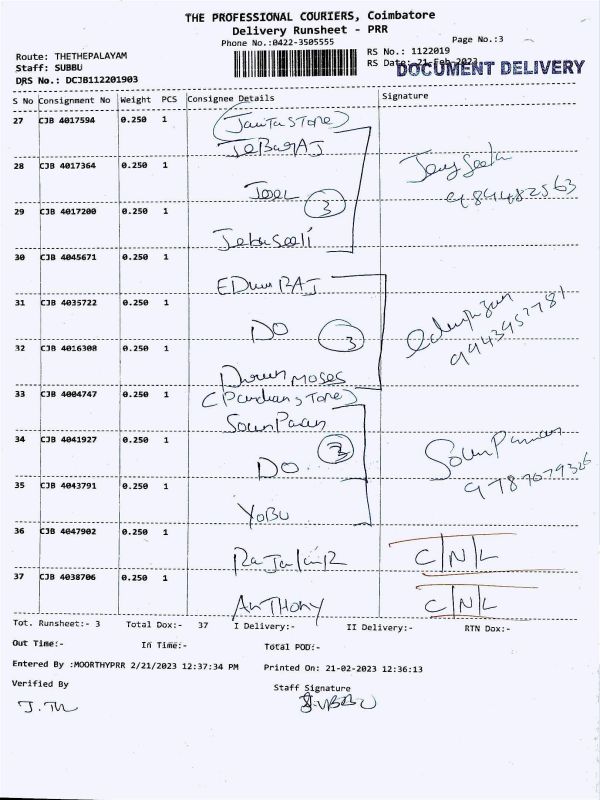 THE PROFESSIONAL COURIERS, Coimbatore
Delivery Runsheet - PRR
Phone No.:0422-3505555
Page No.:3
Route: THETHEPALAYAM
RS No.: 1122019
Staff: SUBBU
RS Date: 21-Feb-2023
DOCUMENT DELIVERY
DRS No.: DCJB112201903
S No Consignment No Weight PCS Consignee Details Signature
27 CJB 4017594 0.250 1
JeBaRAJ
28 CJB 4017364 0.250 1
Joel
3
9894482563
29 CJB 4017200 0.250 1
30 CJB 4045671 0.250 1
31 CJB 4035722 0.250 1
DO
3
9943957781
32 CJB 4016308 0.250 1
moses
33 CJB 4004747 0.250 1
(Pandian Store)
34 CJB 4041927 0.250 1
DO
3
35 CJB 4043791 0.250 1
YOBU
36 CJB 4047902 0.250 1
C/N/L
37 CJB 4038706 0.250 1
AnTHONY C/N/L
Tot. Runsheet:- 3 Total Dox:- 37 I Delivery:- II Delivery:- RTN Dox:-
Out Time:- In Time:- Total POD:-
Entered By :MOORTHYPRR 2/21/2023 12:37:34 PM Printed On: 21-02-2023 12:36:13
Verified By Staff Signature